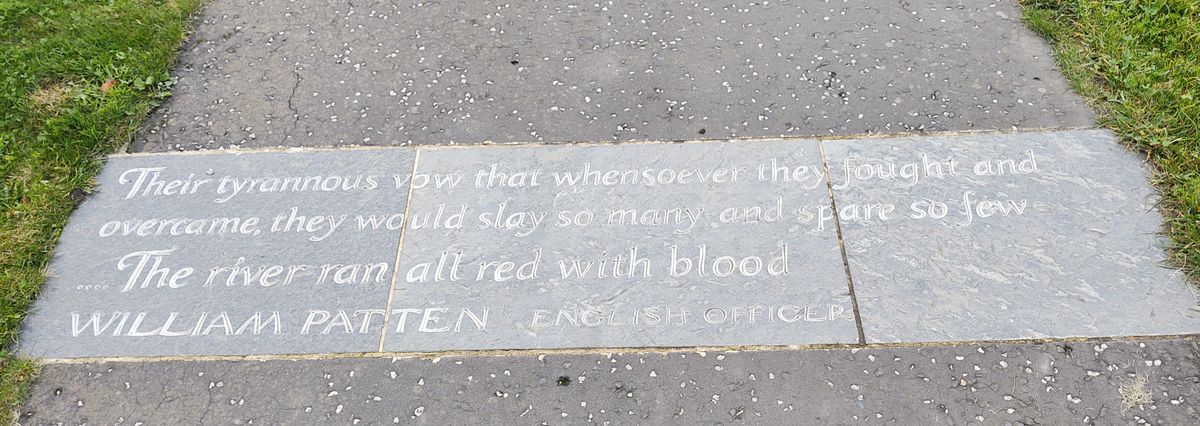 Their tyrannous vow that whensoever they fought and
overcame, they would slay so many and spare so few
.... The river ran all red with blood
WILLIAM PATTEN ENGLISH OFFICER